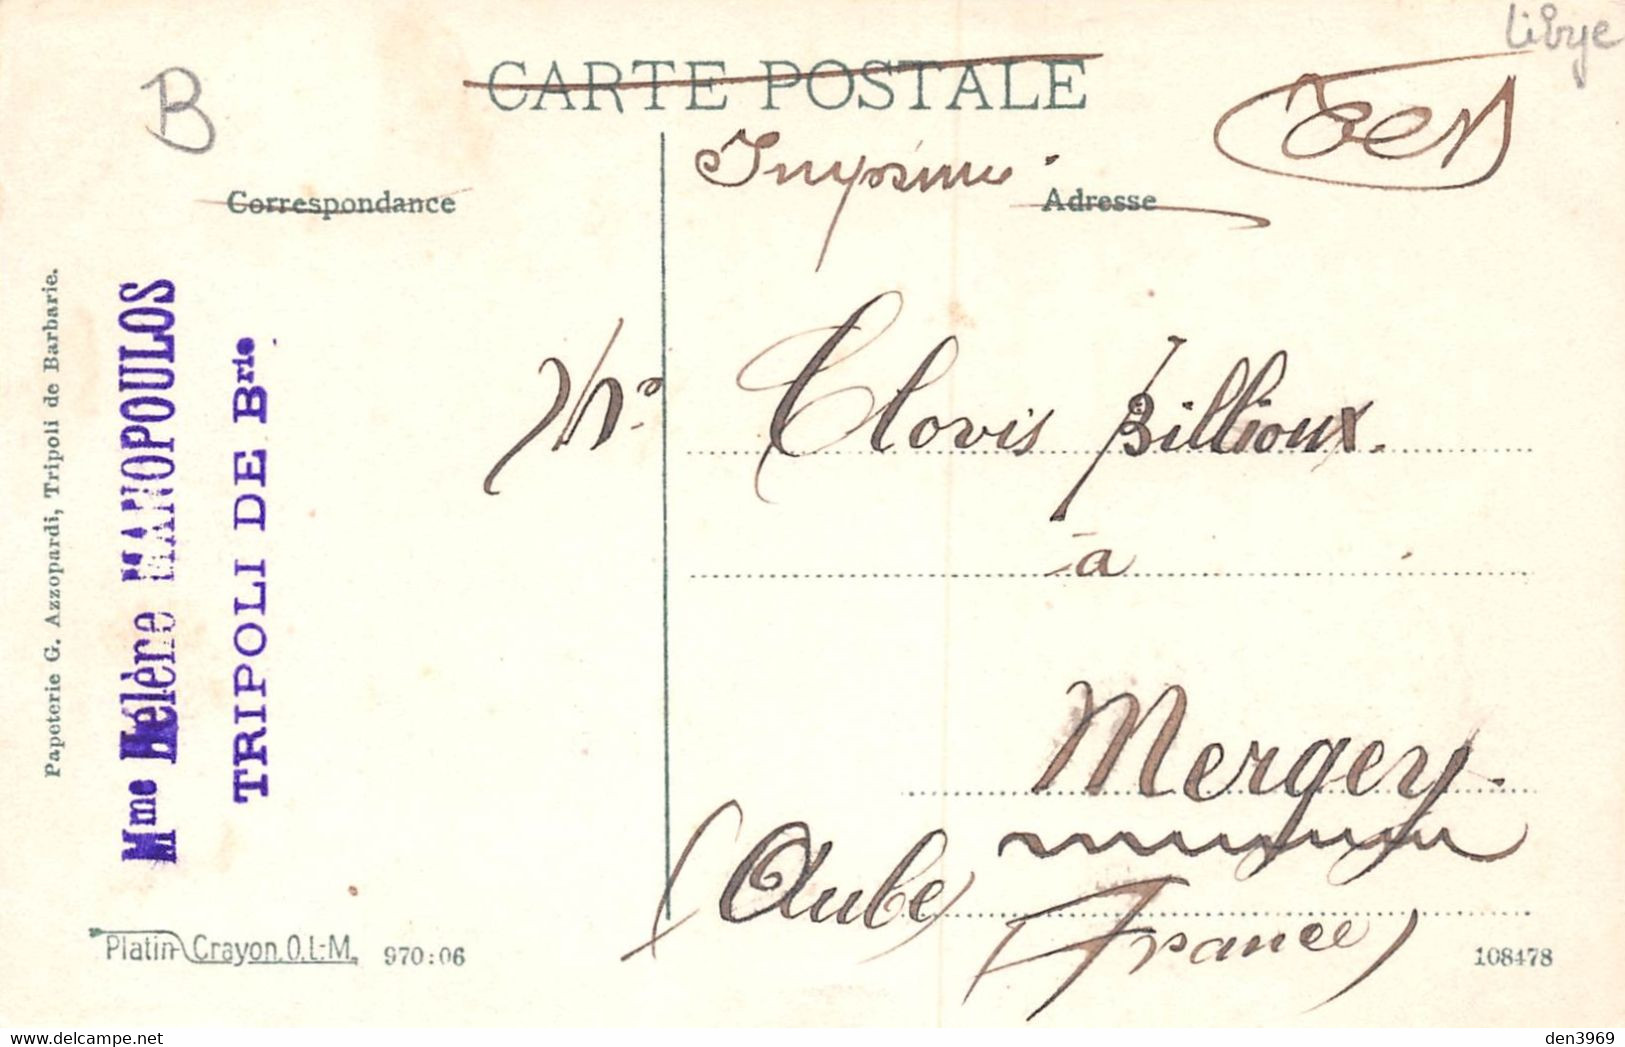 Libye
B
CARTE POSTALE
Imprimé
Correspondance
Adresse
Papeterie G. Azzopardi, Tripoli de Barbarie.
Mme Hélène MANOPOULOS
TRIPOLI DE Brie
Clovis Billioux.
à
Mergey
(Aube
France)
Platin-Crayon. O.L.-M. 970:06
108478
den3969